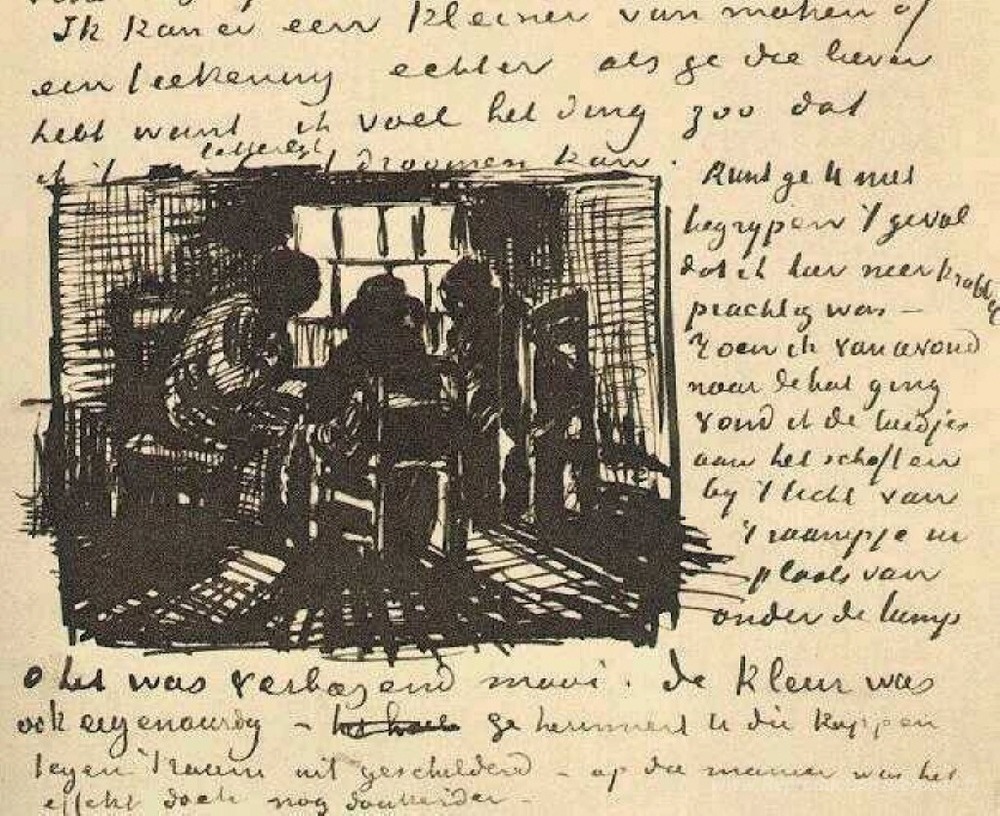 Ik kan er een kleiner van maken of
een teekening echter als ge die liever
hebt want ik voel het ding zoo dat
ik 't letterlijk droomen kan.
Kunt ge U niet
begrypen 't geval
dat ik hier neer krabbel
prachtig was –
Toen ik van avond
naar de hut ging
vond ik de luidjes
aan het schoften
by 't licht van
't raampje in
plaats van
onder de lamp
o het was verbazend mooi. de kleur was
ook eigenaardig – ge herinnert U die koppen
tegen 't raam uit geschilderd – op die manier was het
effekt doch nog donkerder –